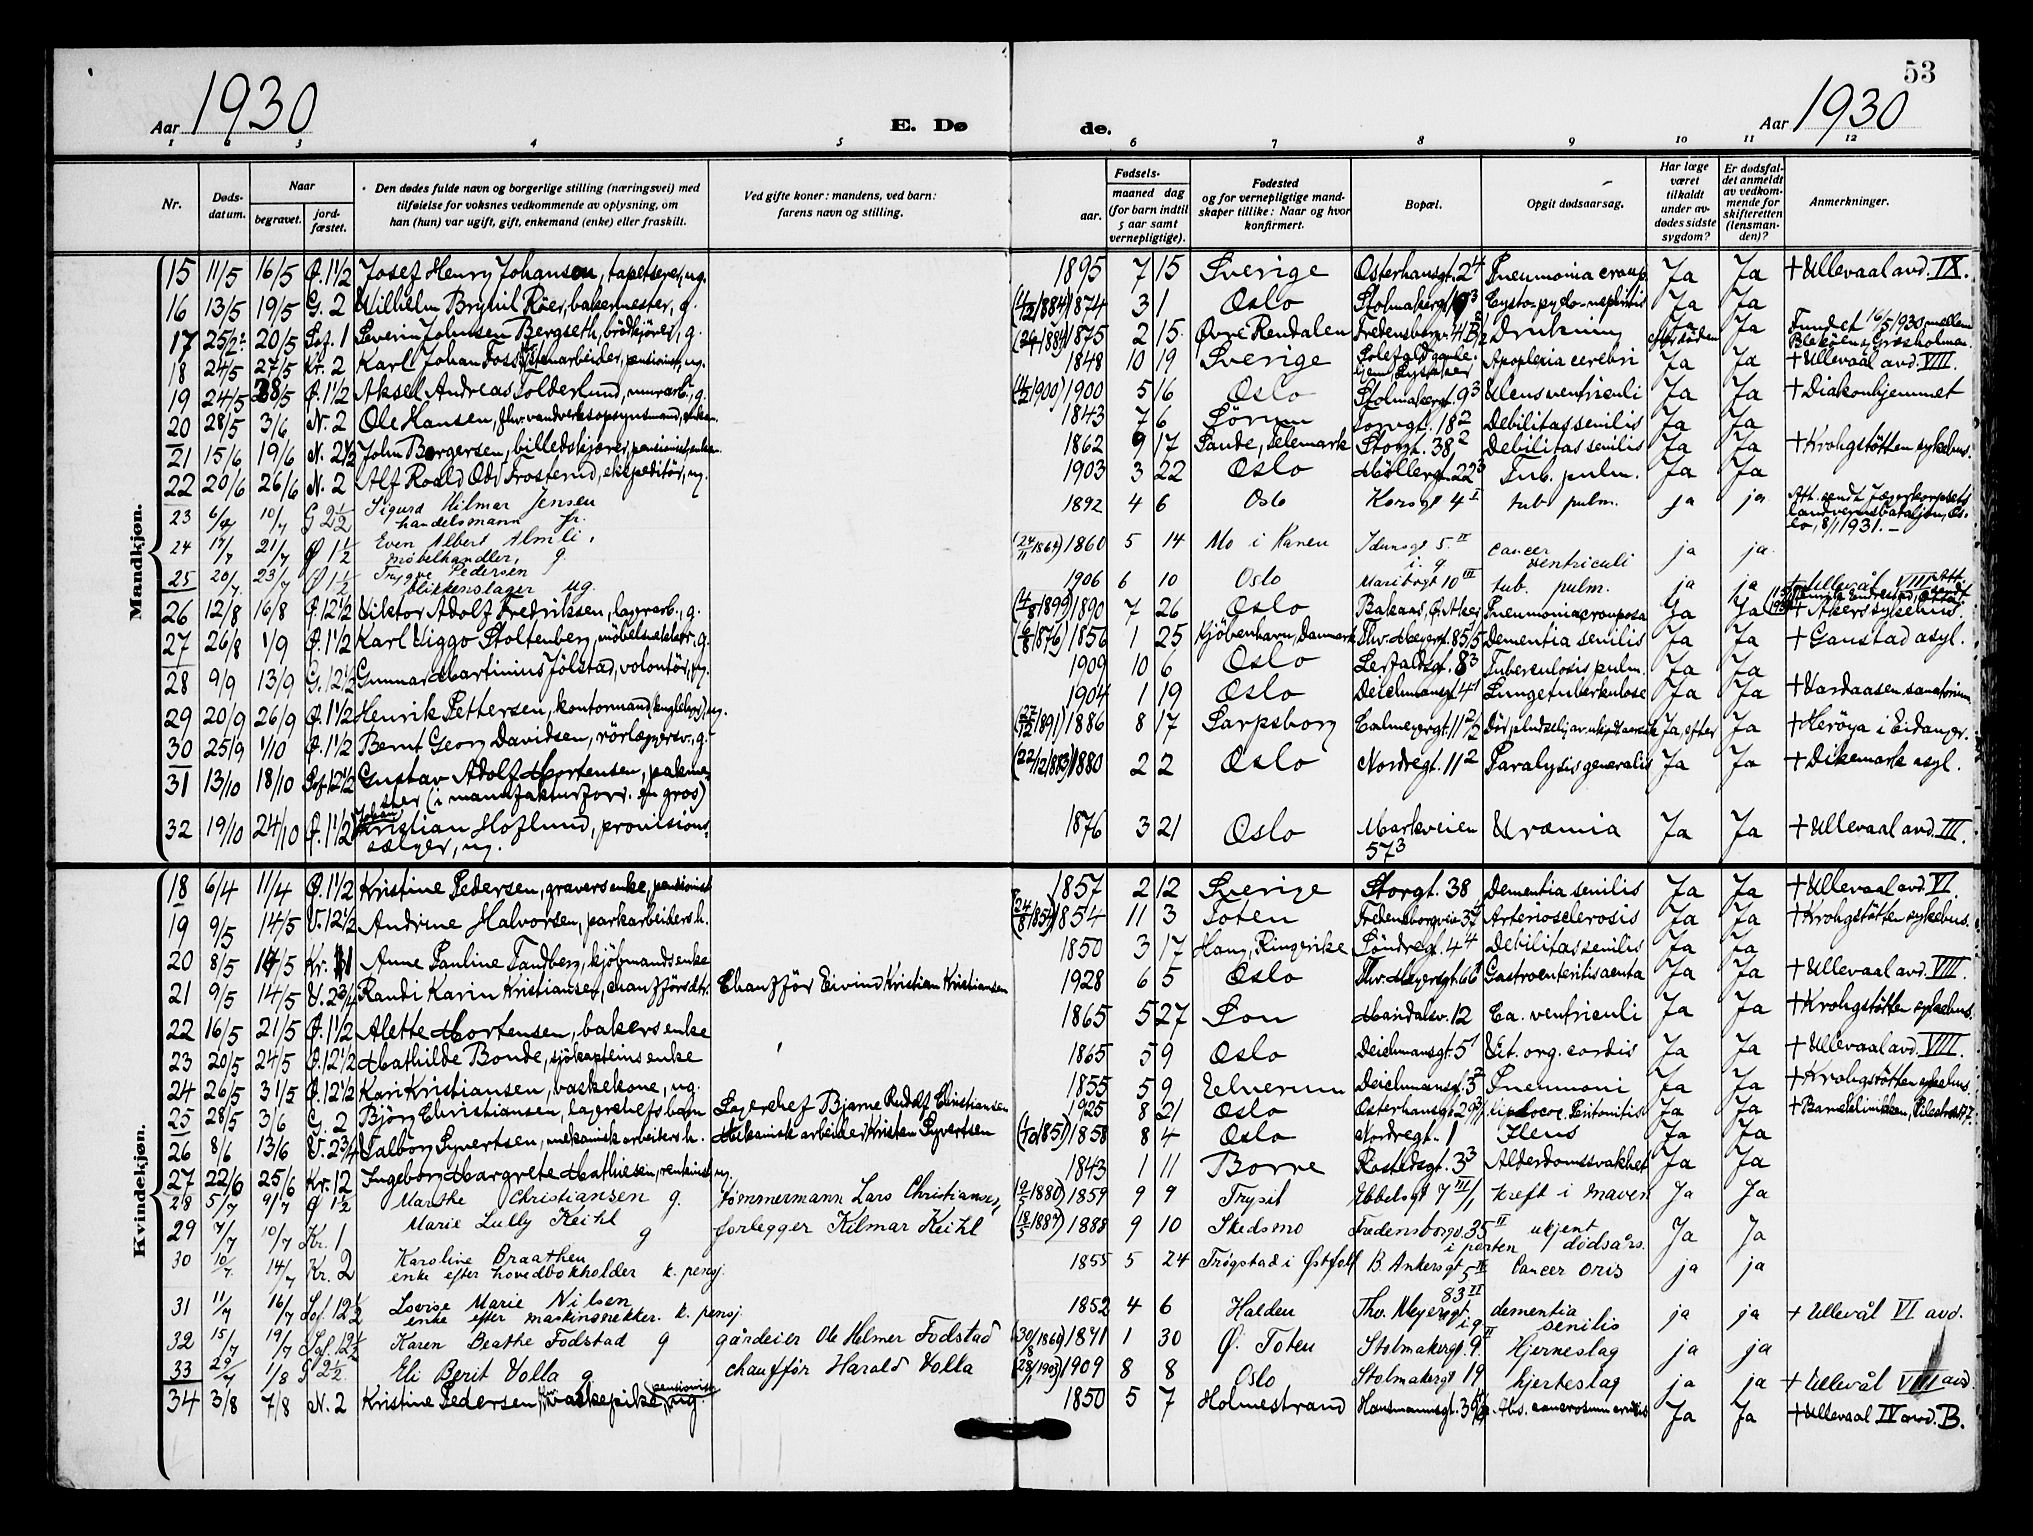 53
Aar 1930
E. Dø
de.
Aar 1930
1 2 3 4 5 6 7 8 9 10 11 12
Nr.
Døds-
datum.
Naar
begravet.
jord-
fæstet.
Den dødes fulde navn og borgerlige stilling (næringsvei) med
tilføielse for voksnes vedkommende av oplysning, om
han (hun) var ugift, gift, enkemand (enke) eller fraskilt.
Ved gifte koner: mandens, ved barn:
farens navn og stilling.
Fødsels-
aar.
maaned dag
(for barn indtil
5 aar samt
vernepligtige).
Fødested
og for vernepligtige mand-
skaper tillike: Naar og hvor
konfirmert.
Bopæl.
Opgit dødsaarsag.
Har læge
været
tilkaldt
under av-
dødes sidste
sygdom?
Er dødsfal-
det anmeldt
av vedkom-
mende for
skifteretten
(lensman-
den)?
Anmerkninger.
Mandkjøn.
15 11/5 16/5 Ø. 1 1/2 Josef Henry Johansen, tapetserer, ug. 1895 7 15 Sverige Osterhausgt. 2 4 Pneumonia croup. Ja Ja + Ullevaal avd. IX.
16 13/5 19/5 G. 2 Wilhelm Brynil Röer, bakermester, g. 1874 3 1 Oslo Ja Ja
17 20/5 Sof. 1 Severin Johnsen Bergseth, brödkjörer, g. 1875 2 15 Øvre Rendalen Fredensborgv. Drukning Ja Fundet 16/5 1930 mellem
Blekøen, Græsholmen.
18 24/5 27/5 Kr. 2 Karl Johan Foss, pensionist, ug. 1848 10 19 Sverige Apoplexia cerebri Ja Ja + Ullevaal avd. VIII.
19 24/5 28/5 Ø. 1 1/2 Aksel Andreas Solderlund, murarb., g. 1900 5 6 Oslo Stolmakergt. 9 3 Ulcus ventriculi Ja Ja + Diakonhjemmet
20 28/5 3/6 N. 2 Ole Hansen, 1843 7 6 Sörum Torvgt. 18 2 Debilitas senilis Ja Ja
21 15/6 19/6 N. 2 1/2 John Borgersen, billedskjærer, 1862 9 17 Sande, Telemark Storgt. 38 2 Debilitas senilis Ja Ja + Krohgstötten sykehus.
22 20/6 26/6 N. 2 Alf Roald Odd Frosterud, ekspeditör, ug. 1903 3 22 Oslo Möllergt. 22 3 Tub. pulm. Ja Ja
23 10/7 G 2 1/2 Sigurd Hilmar Jensen
handelsmann fr. 1892 4 6 Oslo Korsgt 4 I tub pulm. ja ja Att. sendt Jægerkorpsets
landvernsbataljon, Os-
lo, 8/1 1931. –
24 17/7 21/7 Ø 1 1/2 Even Albert Almli,
møbelhandler, g. 1860 5 14 Mo i Ranen Idunsgt 5 II
i. g cancer
ventriculi ja ja
25 20/7 23/7 Ø 1 1/2 Trygve Pedersen
blikkenslager ug. 1906 6 10 Oslo Maribogt 10 III tub. pulm. ja ja + Ullevål VIII
26 12/8 16/8 Ø. 12 1/2 Viktor Adolf Fredriksen, lagerarb., g. (4/8 1899) 1890 7 26 Oslo Bakaas, Ø. Aker Pneumonia crouposa Ja Ja + Akers sykehus
27 26/8 1/9 Ø. 1 1/2 Karl Viggo Stoltenberg, g. 1856 1 25 Kjöbenhavn, Danmark Thv. Meyersgt. 85/5 Dementia senilis Ja Ja + Gaustad asyl.
28 9/9 13/9 G. 12 1/2 Gunnar Martinius Jölstad, volontör, ug. 1909 10 6 Oslo 8 3 Tuberculosis pulm. Ja Ja
29 20/9 26/9 Ø. 1 1/2 Henrik Pettersen, kontormand, ug. 1904 1 19 Oslo Deichmansgt. 4 1 Lungetuberkulose Ja Ja + Vardaasen sanatorium
30 25/9 1/10 Ø. 1 1/2 Bernt Georg Davidsen, rörlæggersv., g. 1886 8 17 Sarpsborg Calmeyergt. 11 2/2 Ja, efter Ja + Heröya i Eidanger.
31 13/10 18/10 Sof. 12 1/2 Gustav Adolf Mortensen, pakme-
ster (i manufakturforr. en gros) (22/12 1883) 1880 2 2 Oslo Nordregt. 11 2 Paralysis generalis Ja Ja + Dikemark asyl.
32 19/10 24/10 Ø. 1 1/2 Johan
Kristian Hoflund, provisions-
sælger, ug. 1876 3 21 Oslo Markveien
57 3 Uræmia Ja Ja + Ullevaal avd. III.
Kvindekjøn.
18 6/4 11/4 Ø. 1 1/2 Kristine Pedersen, gravers enke, pensionist 1857 2 12 Sverige Storgt. 38 Dementia senilis Ja Ja + Ullevaal avd. VI.
19 9/5 14/5 V. 12 1/2 Andrine Halvorsen, parkarbeiders h. 1854 11 3 Toten Fredensborgvei 37 Arteriosclerosis Ja Ja + Krohgstötten sykehus.
20 8/5 14/5 Kr. 1 Anne Pauline Tandberg, kjöbmandsenke 1850 3 17 Haug, Ringerike Söndregt. 4 4 Debilitas senilis Ja Ja
21 9/5 14/5 V. 2 3/4 Randi Karin Kristiansen, chaufförs dtr. Chaufför Eivind Kristian Kristiansen 1928 6 5 Oslo Thv. Meyersgt. 66 1 Gastroenteritis acuta Ja Ja + Ullevaal avd. VIII.
22 16/5 21/5 Ø. 1 1/2 Alette Mortensen, bakers enke 1865 5 27 Son Mandalsv. 12 Ca. ventriculi Ja Ja + Krohgstötten sykehus.
23 20/5 24/5 Ø. 12 1/2 Mathilde Bonde, sjökapteins enke 1865 5 9 Oslo Deichmansgt. 5 1 Vit. org. cordis Ja Ja + Ullevaal avd. VIII.
24 26/5 31/5 Ø. 12 1/2 Kari Kristiansen, vaskekone, ug. 1855 5 9 Elverum Deichmansgt. Pneumoni Ja Ja + Krohgstötten sykehus
25 28/5 3/6 G. 2 Björg Christiansen, lagerchefs barn Lagerchef Bjarne Rudolf Christiansen 1925 8 21 Oslo Osterhausgt. 29 Peritonitis Ja Ja + Barneklinikken, Pilestræt 7.
26 8/6 13/6 V. 2 3/4 Valborg Syvertsen, mekanisk arbeiders h. Mekanisk arbeider Kristen Syvertsen 1858 8 4 Oslo Nordregt. 1 Ileus Ja Ja
27 22/6 25/6 Kr. 12 Ingeborg Margrete Mathiesen, ug. 1843 1 11 Borre Rostedsgt. 3 3 Alderdomssvakhet Ja Ja
28 5/7 9/7 Ø 1 1/2 Marthe Christiansen g. tømmermann Lars Christiansen 1859 9 9 Trysil Ebbelsgt 7 III/1 Kreft i maven Ja Ja
29 7/7 10/7 Kr. 1 Marie Lully Keihl g forlegger Hilmar Keihl 1888 9 10 Skedsmo Fredensborgv. 35 II
i porten ukjent
dødsårs. Ja Ja
30 10/7 14/7 Kr. 2 Karoline Braathen
enke efter hovedbokholder k. pensj. 1855 5 24 Trøgstad i Østfold B. Ankersgt 5 II Cancer oris ja ja
31 11/7 16/7 Sof. 12 1/2 Lovise Marie Nilsen
enke efter maskinsnekker. k. pensj. 1852 4 6 Halden Tho. Meyersgt 83 II
i g dementia
senilis ja ja + Ullevål VI avd.
32 15/7 19/7 Sof. 12 1/2 Karen Beathe Fodstad g gårdeier Ole Helmer Fodstad 1841 1 30 Ø. Toten Stolmakergt. 9 II Hjerneslag ja ja
33 29/7 1/8 G 2 1/2 Eli Berit Volla g chauffør Harald Volla 1909 8 8 Oslo Stolmakergt 19 hjerteslag ja ja + Ullevål VIII avd
34 3/8 7/8 N. 2 Kristine Pedersen, vaskepike, ug. pensionist 1850 5 7 Holmestrand Hausmannsgt. Ja Ja + Ullevaal IV avd. B.